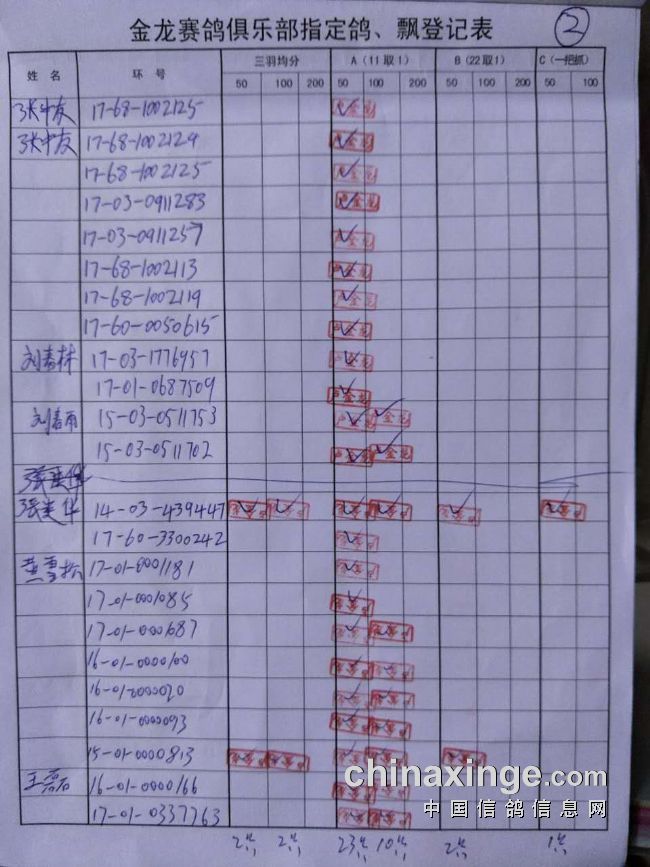 金龙赛鸽俱乐部指定鸽、飘登记表 ②
姓 名 环 号 三羽均分 A（11取1） B（22取1） C（一把抓）
50 100 200 50 100 200 50 100 200 50 100
张中友 17-68-1002125
张中友 17-68-1002129
17-68-1002125
17-03-0911283
17-03-0911257
17-68-1002113
17-68-1002119
17-60-0050615
刘春林 17-03-1776957
17-01-0687509
刘春雨 15-03-0511753
15-03-0511702
14-03-439447
17-60-3300242
17-01-0001181
17-01-0001085
17-01-0001687
16-01-0000100
16-01-0000020
16-01-0000093
15-01-0000813
王磊 16-01-0000166
17-01-0337763
chinaxinge.com
中国信鸽信息网